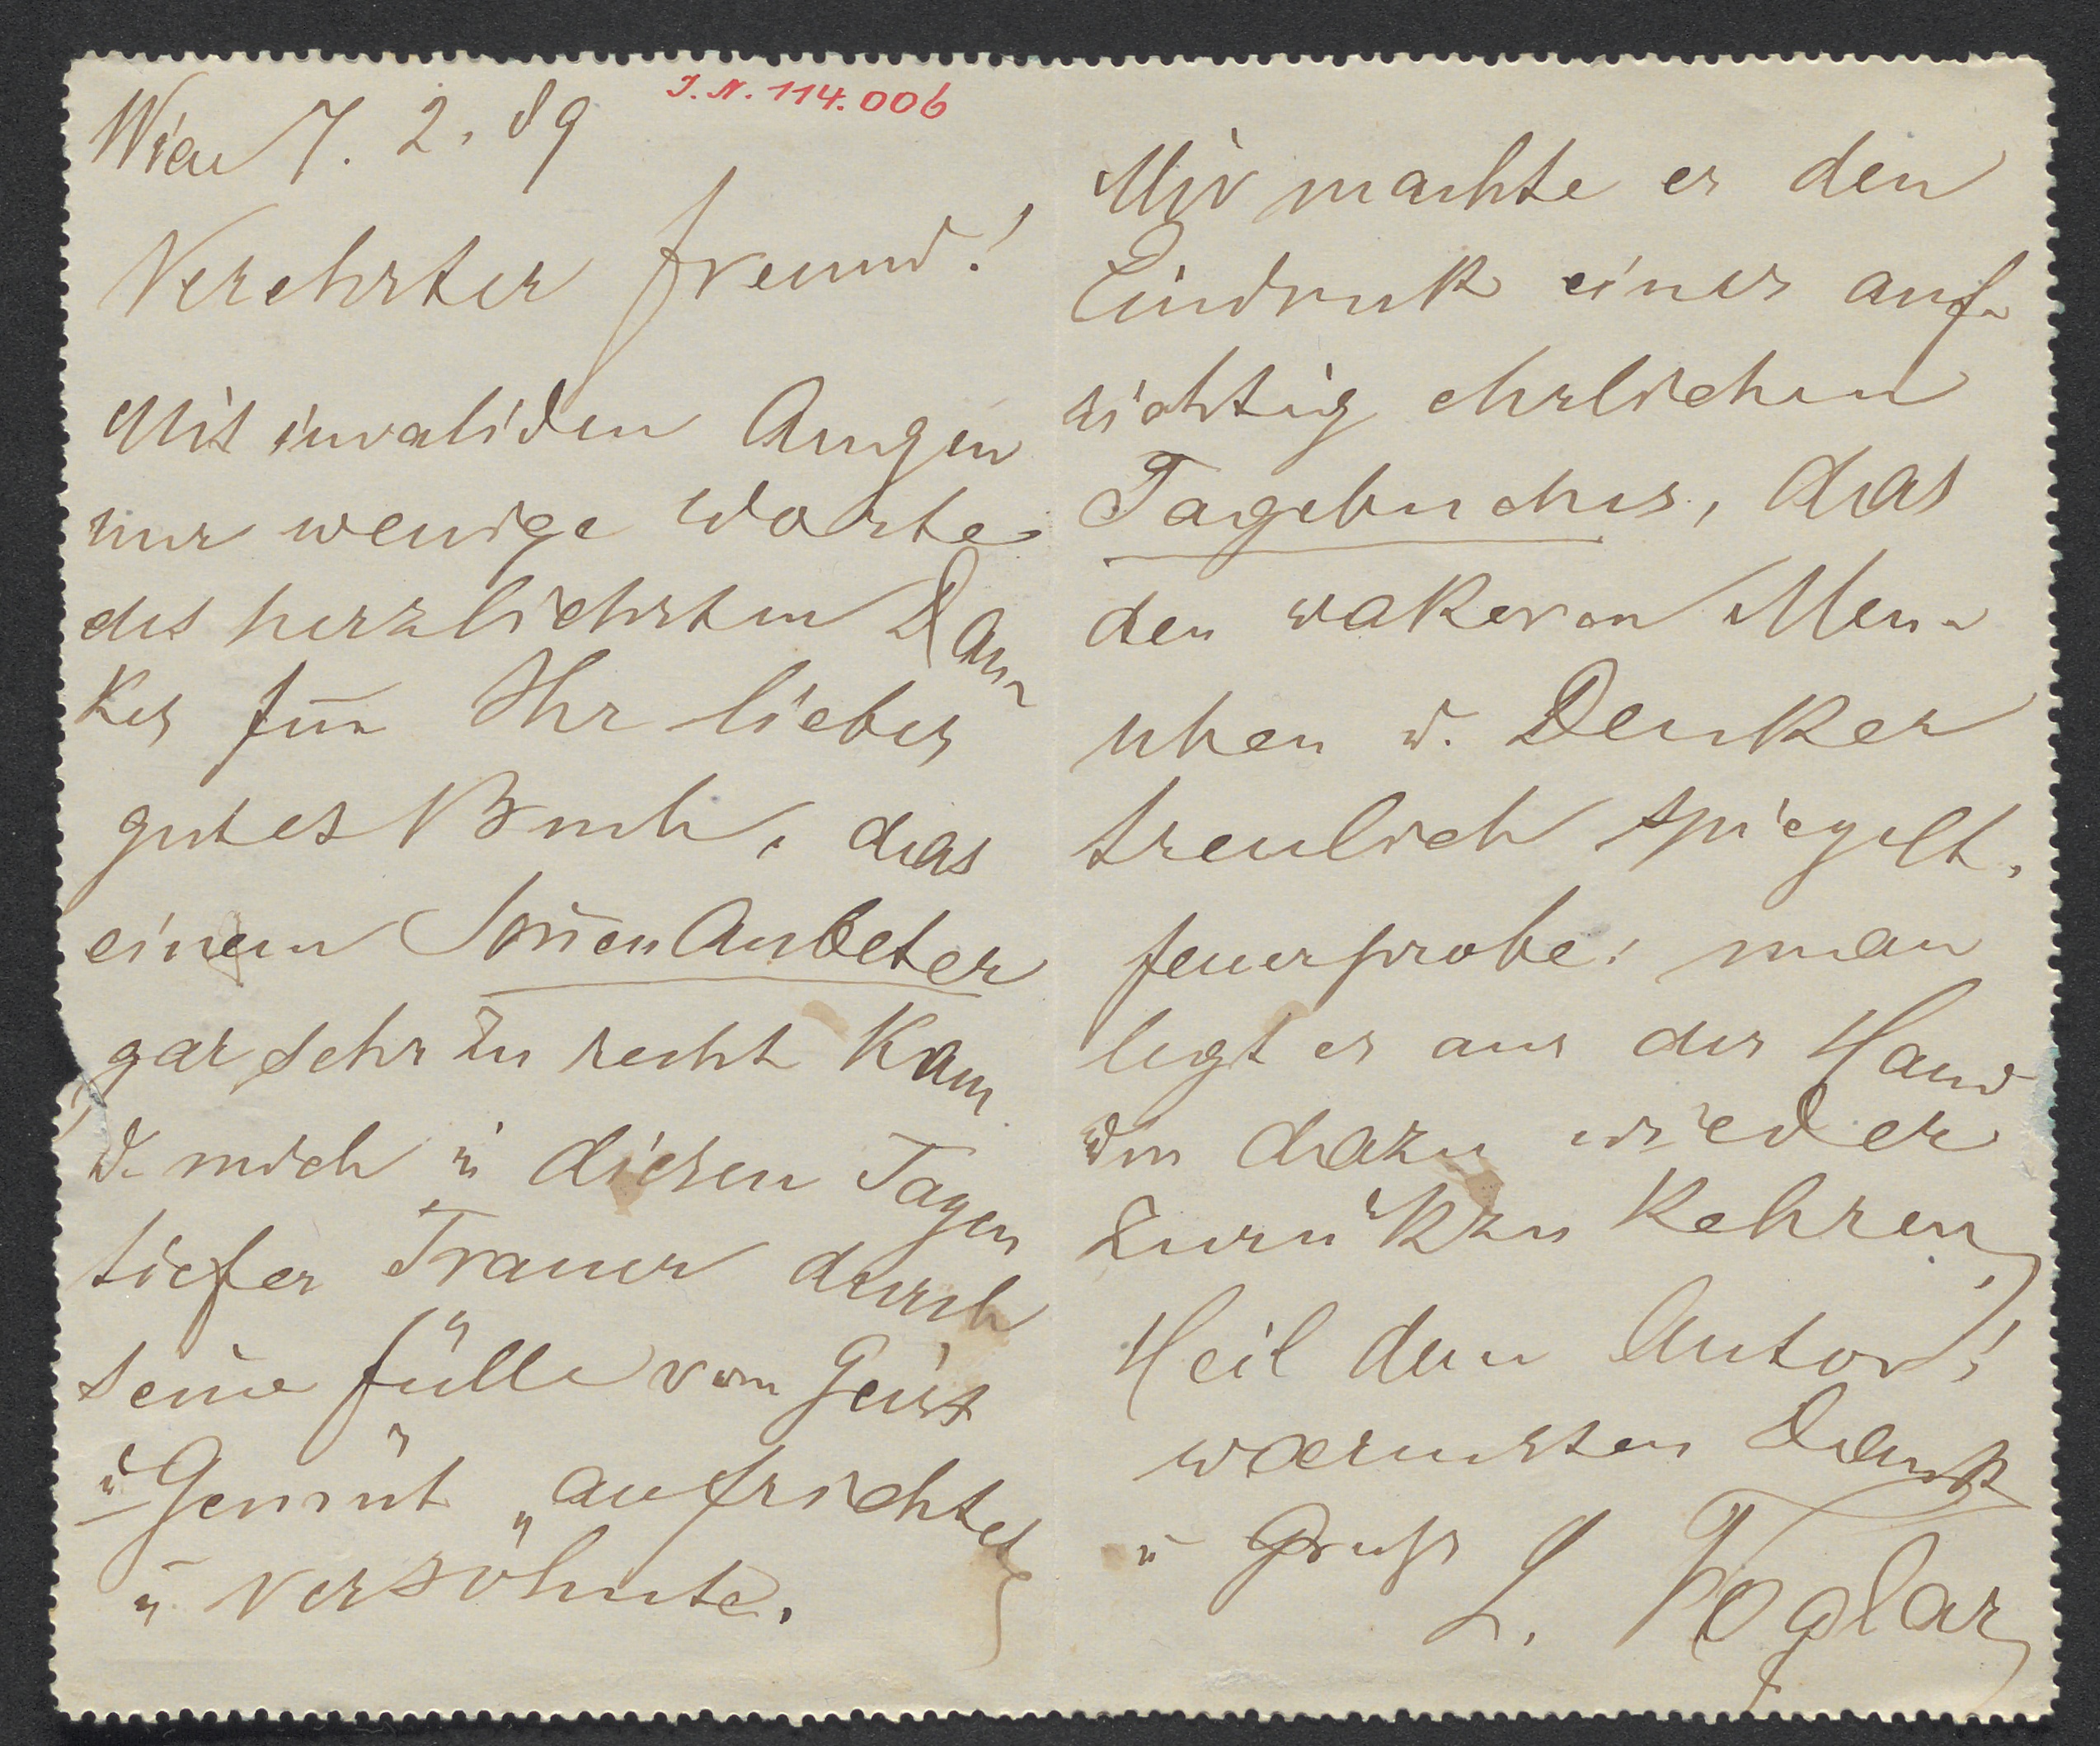 Wien 7. 2. 89
J. N. 114.006
Verehrter Freund!
Mit invaliden Augen
nur wenige Worte
des herzlichsten Dan-
kes für Ihr liebes
gutes Buch, das
einem Soñen Anbeter
gar sehr zu recht kam
u. mich in diesen Tagen
tiefer Trauer durch
seine Fülle von Geist
u Gemüt „aufrichtet
u versöhnte.
Mir machte es den
Eindruk eines auf-
richtig ehrlichen
Tagebuches, das
den wakeren Men-
schen u. Denker
treulich spiegelt.
Feuerprobe: man
legt es aus der Hand
um dazu wieder
zurükzukehren!
Heil dem Autor!
waermsten Dank
u Gruß
L. Foglar